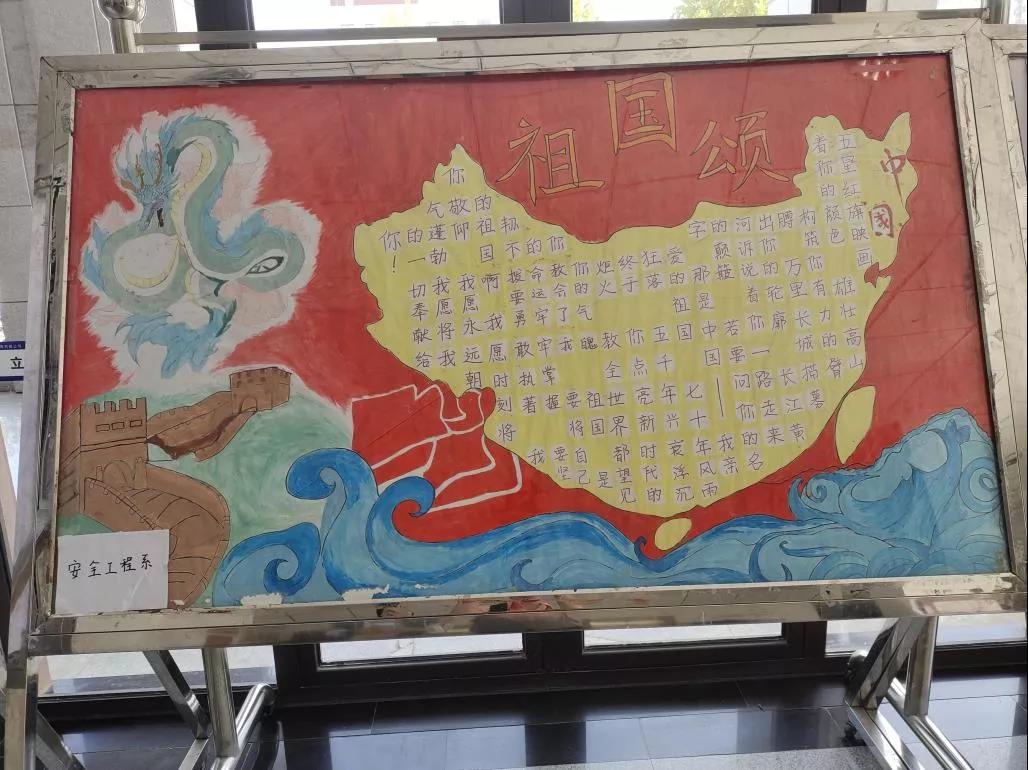 祖国颂
中國
五星红旗映画
着你的颜色 雄壮高山
构筑你有力的臂
膊 万里长城描摹
出你的轮廓 长江黄
河诉说着你一路走来
的颠簸 若要问你的名
字 那是中国——我的亲
爱的祖国 七十年风雨
狂落 五千年兴衰浮沉
终于 点亮新时代的
炬火 你教全世界都望见
你的气魄 祖国是
你教会了我要将自己
的命运牢牢掌握 要坚
韧不拔 要勇敢执着 我
的祖国啊 我愿时刻将
你敬仰 我愿永远朝
气蓬勃 我愿将我
的一切奉献给
你！
安全工程系
立